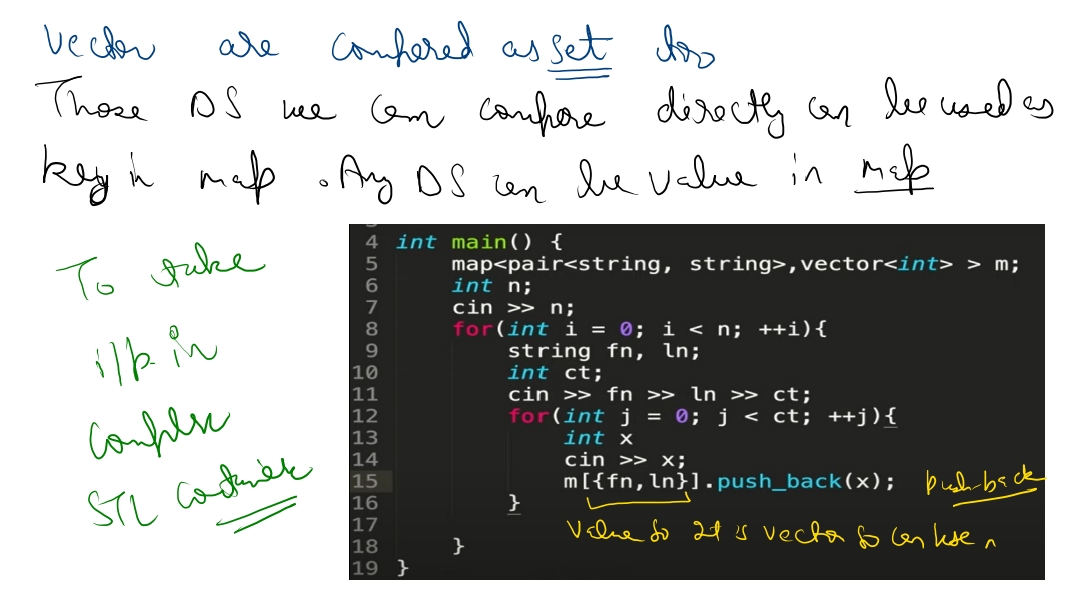 vector are compared as set too
Those DS we can compare directly can be used as
key in map . Any DS can be value in map
To take
i/p in
complex
STL container
4 int main() {
5 map<pair<string, string>,vector<int> > m;
6 int n;
7 cin >> n;
8 for(int i = 0; i < n; ++i){
9 string fn, ln;
10 int ct;
11 cin >> fn >> ln >> ct;
12 for(int j = 0; j < ct; ++j){
13 int x
14 cin >> x;
15 m[{fn,ln}].push_back(x); push-back
16 }
17 value so it is vector so can use
18 }
19 }